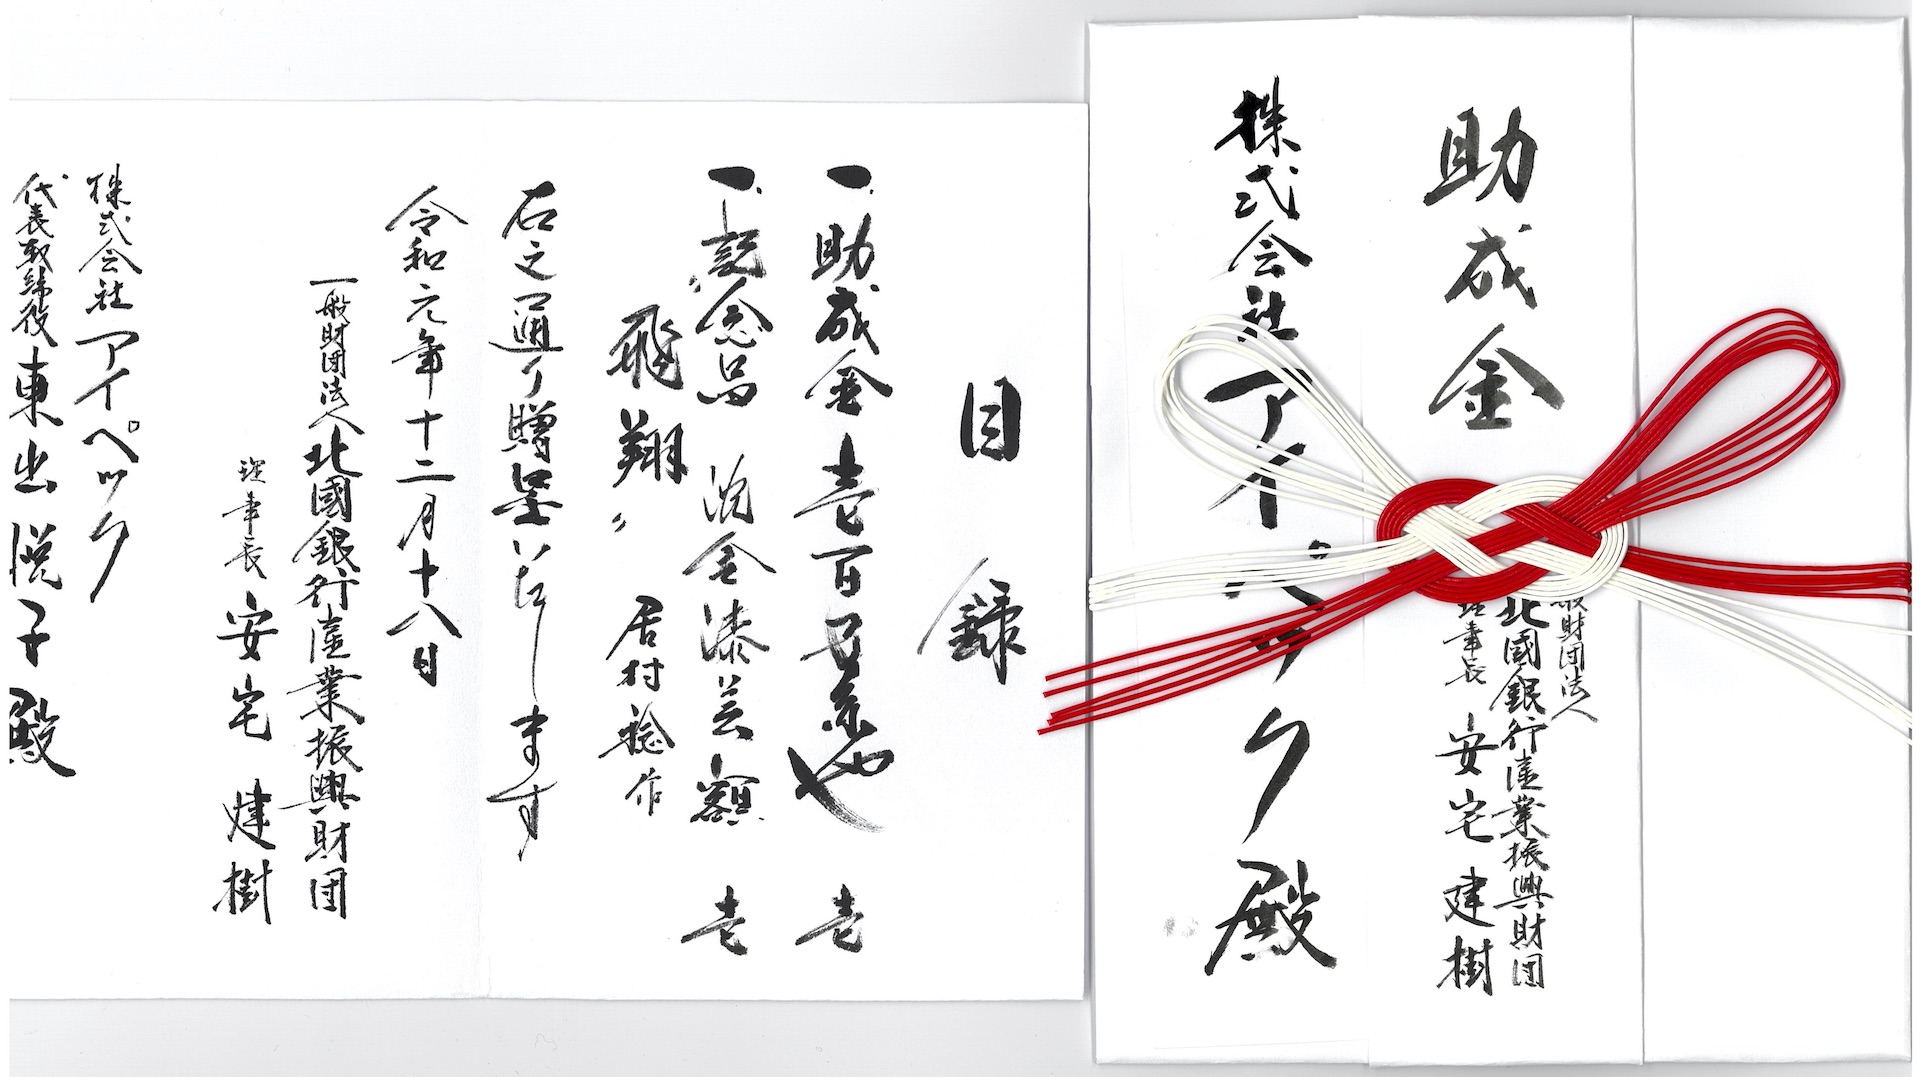 助成金
一般財団法人
北國銀行産業振興財団
理事長 安宅建樹
株式会社アイペック殿
目録
一、助成金 壱百万円也 壱
一、記念品 沈金漆芸額 壱
〝飛翔〟 居村稔作
右之通り贈呈いたします
令和元年十二月十八日
一般財団法人北國銀行産業振興財団
理事長 安宅建樹
株式会社アイペック
代表取締役 東出悦子殿